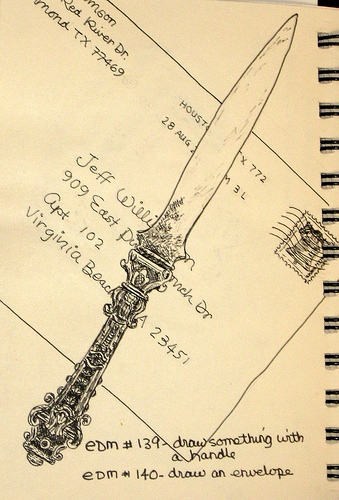 Red River Dr.
mond TX 77469
HOUST X 772
28 AUG M 3L
Jeff Willi
909 East D nch Dr
Apt 102
Virginia Beac A 23451
EDM # 139 - draw something with
a handle
EDM # 140 - draw an envelope